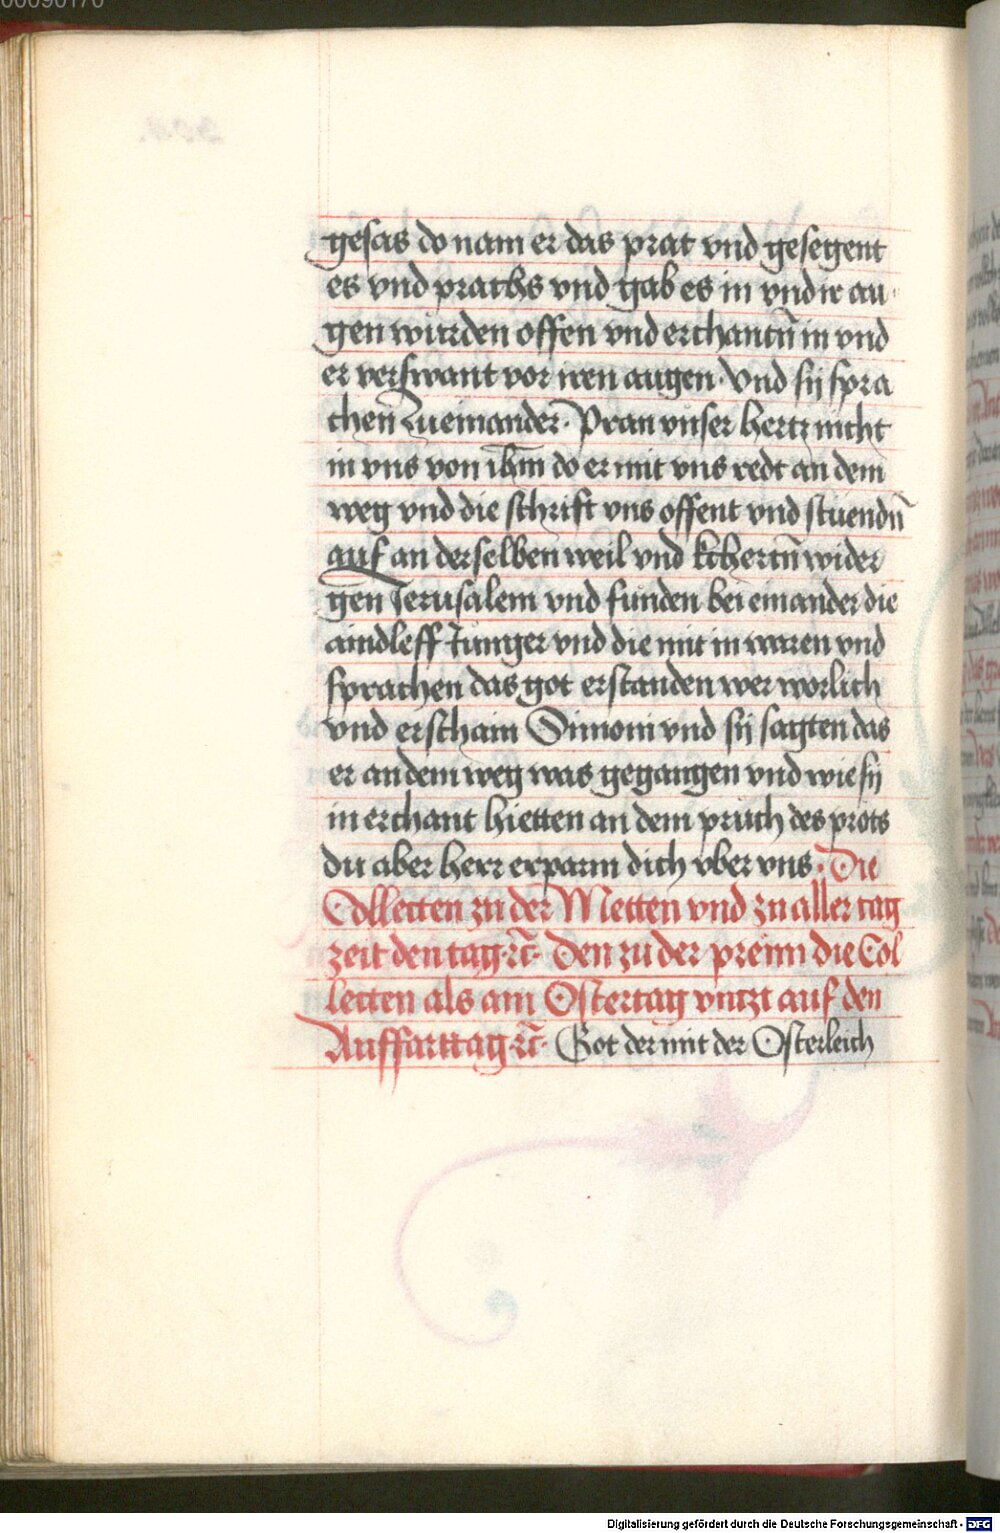 00090170
gesas do nam er das prat vnd gesegent
es vnd prachs vnd gab es in vnd ir au
gen wurden offen vnd erchantn̄ in vnd
er verswant vor iren augen. Vnd sij spra
chen zueinander. Pran vnser hertz nicht
in vns von ihm do er mit vns redt an dem
weg vnd die schrift vns offent vnd stuendn̄
auf an derselben weil vnd kchertn̄ wider
gen Jerusalem vnd funden bei einander die
aindleff Junger vnd die mit in waren vnd
sprachen das got erstanden wer worlich
vnd erschain Simoni vnd sij sagten das
er an dem weg was gegangen vnd wie sij
in erchant hietten an dem pruch des prots
du aber herr erparm dich vber vns. Die
Collecten zu der Metten vnd zu aller tag
zeit den tag. rc̄. Den zu der preim die Col
lecten als am Ostertag vntzt auf den
Auffarttag. rc̄. Got der mit der Osterleich
Digitalisierung gefördert durch die Deutsche Forschungsgemeinschaft - DFG